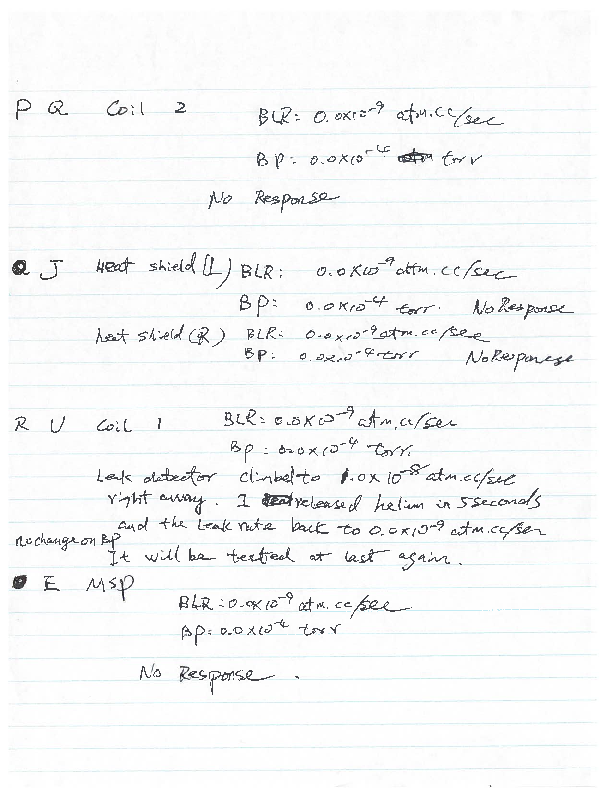 P Q Coil 2 BLR: 0.0x10⁻⁹ atm.cc/sec
BP: 0.0x10⁻⁴ torr
No Response
J Heat shield (L) BLR: 0.0x10⁻⁹ atm.cc/sec
BP: 0.0x10⁻⁴ torr. No Response
heat shield (R) BLR: 0.0x10⁻⁹ atm.cc/sec
BP: 0.0x10⁻⁴ torr No Response
R U Coil 1 BLR: 0.0x10⁻⁹ atm.cc/sec
BP: 0.0x10⁻⁴ torr.
Leak detector climbel to 1.0x10⁻⁸ atm.cc/sec
right away. I released helium in 5 seconds
and the leak rate back to 0.0x10⁻⁹ atm.cc/sec
no change on BP
It will be tested at last again.
E MSP
BLR: 0.0x10⁻⁹ atm.cc/sec
BP: 0.0x10⁻⁴ torr
No Response.